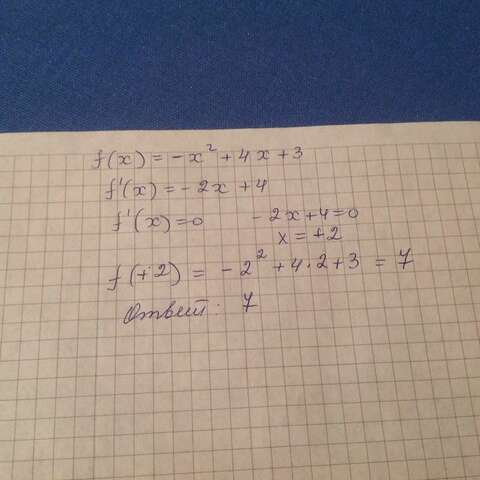 f(x) = -x² + 4x + 3
f'(x) = -2x + 4
f'(x) = 0 -2x + 4 = 0
x = +2
f(+2) = -2² + 4·2 + 3 = 7
Ответ: 7